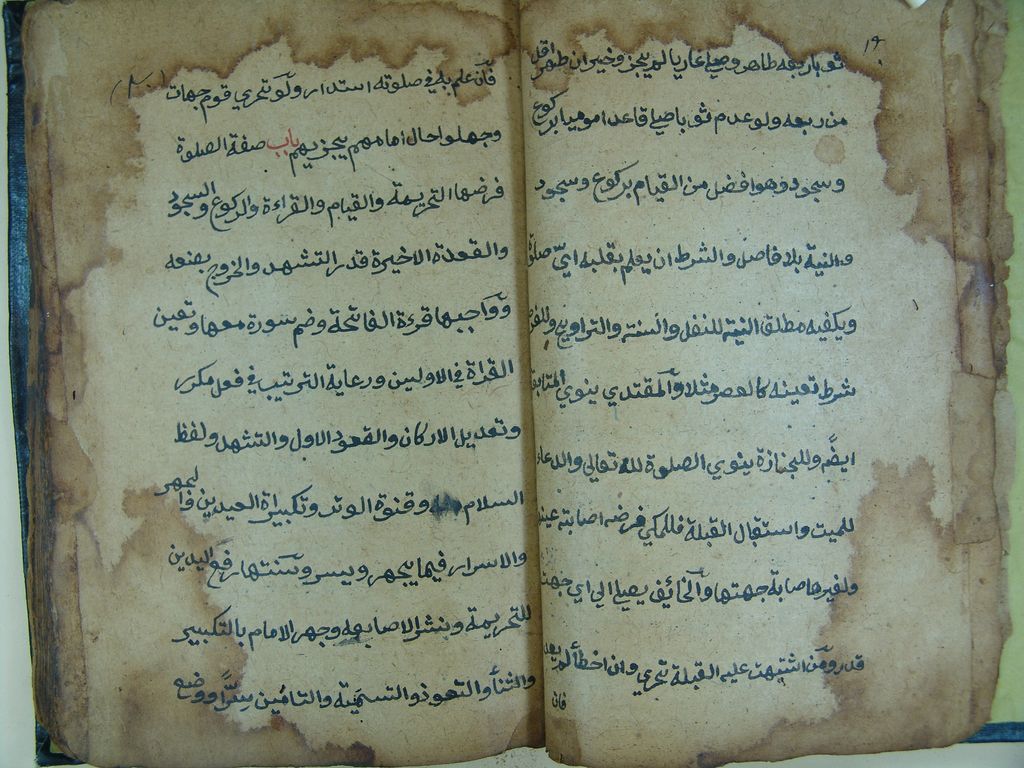 ١٩
ثوب ربعه طاهر وصلي عاريا لم يجز وخير ان طهر اقل
من ربعه ولو عدم ثوبا صلي قاعدا موميا بركوع
وسجود وهو افضل من القيام بركوع وسجود
والنية بلا فاصل والشرط ان يعلم بقلبه ايّ صلوة
ويكفيه مطلق النية للنفل والسنة والتراويح وللفرض
شرط تعينه كالعصر مثلا والمقتدي ينوي المتابعة
ايضًا وللجنازة ينوي الصلوة لله تعالي والدعاء
للميت واستقبال القبلة فللمكي فرضه اصابة عينها
ولغيره اصابة جهتها والخائف يصلي الي اي جهة
قدر ومن اشتبهت عليه القبلة تحري وان اخطأ لم يعد
فان
فان علم به في صلوته استدار ولو تحري قوم جهات
وجهلوا حال امامهم يجزيهم باب صفة الصلوة
فرضها التحريمة والقيام والقراءة والركوع والسجود
والقعدة الاخيرة قدر التشهد والخروج بصنعه
وواجبها قرءة الفاتحة وضم سورة معها وتعين
القراة في الاوليين ورعاية الترتيب في فعل مكرر
وتعديل الاركان والقعود الاول والتشهد ولفظ
السلام وقنوة الوتر وتكبيراة العيدين والجهر
والاسرار فيما يجهر ويسر وسنتها رفع اليدين
للتحريمة ونشر الاصابعه وجهر الامام بالتكبير
والثنأ والتعوذ والتسمية والتامين سرًّا ووضع